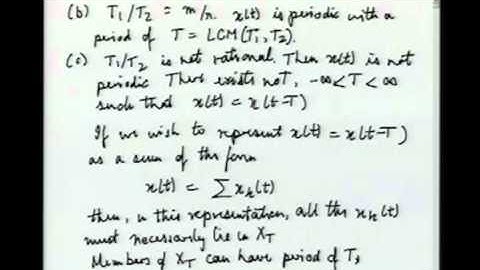 (b) T₁/T₂ = m/n. x(t) is periodic with a
period of T = LCM(T₁, T₂).
(c) T₁/T₂ is not rational. Then x(t) is not
periodic There exists not, -∞<T<∞
such that x(t) = x(t-T)
If we wish to represent x(t) = x(t-T)
as a sum of the form
x(t) = Σ xₖ(t)
then, in this representation, all the xₖ(t)
must necessarily lie in X_T
Members of X_T can have period of T,